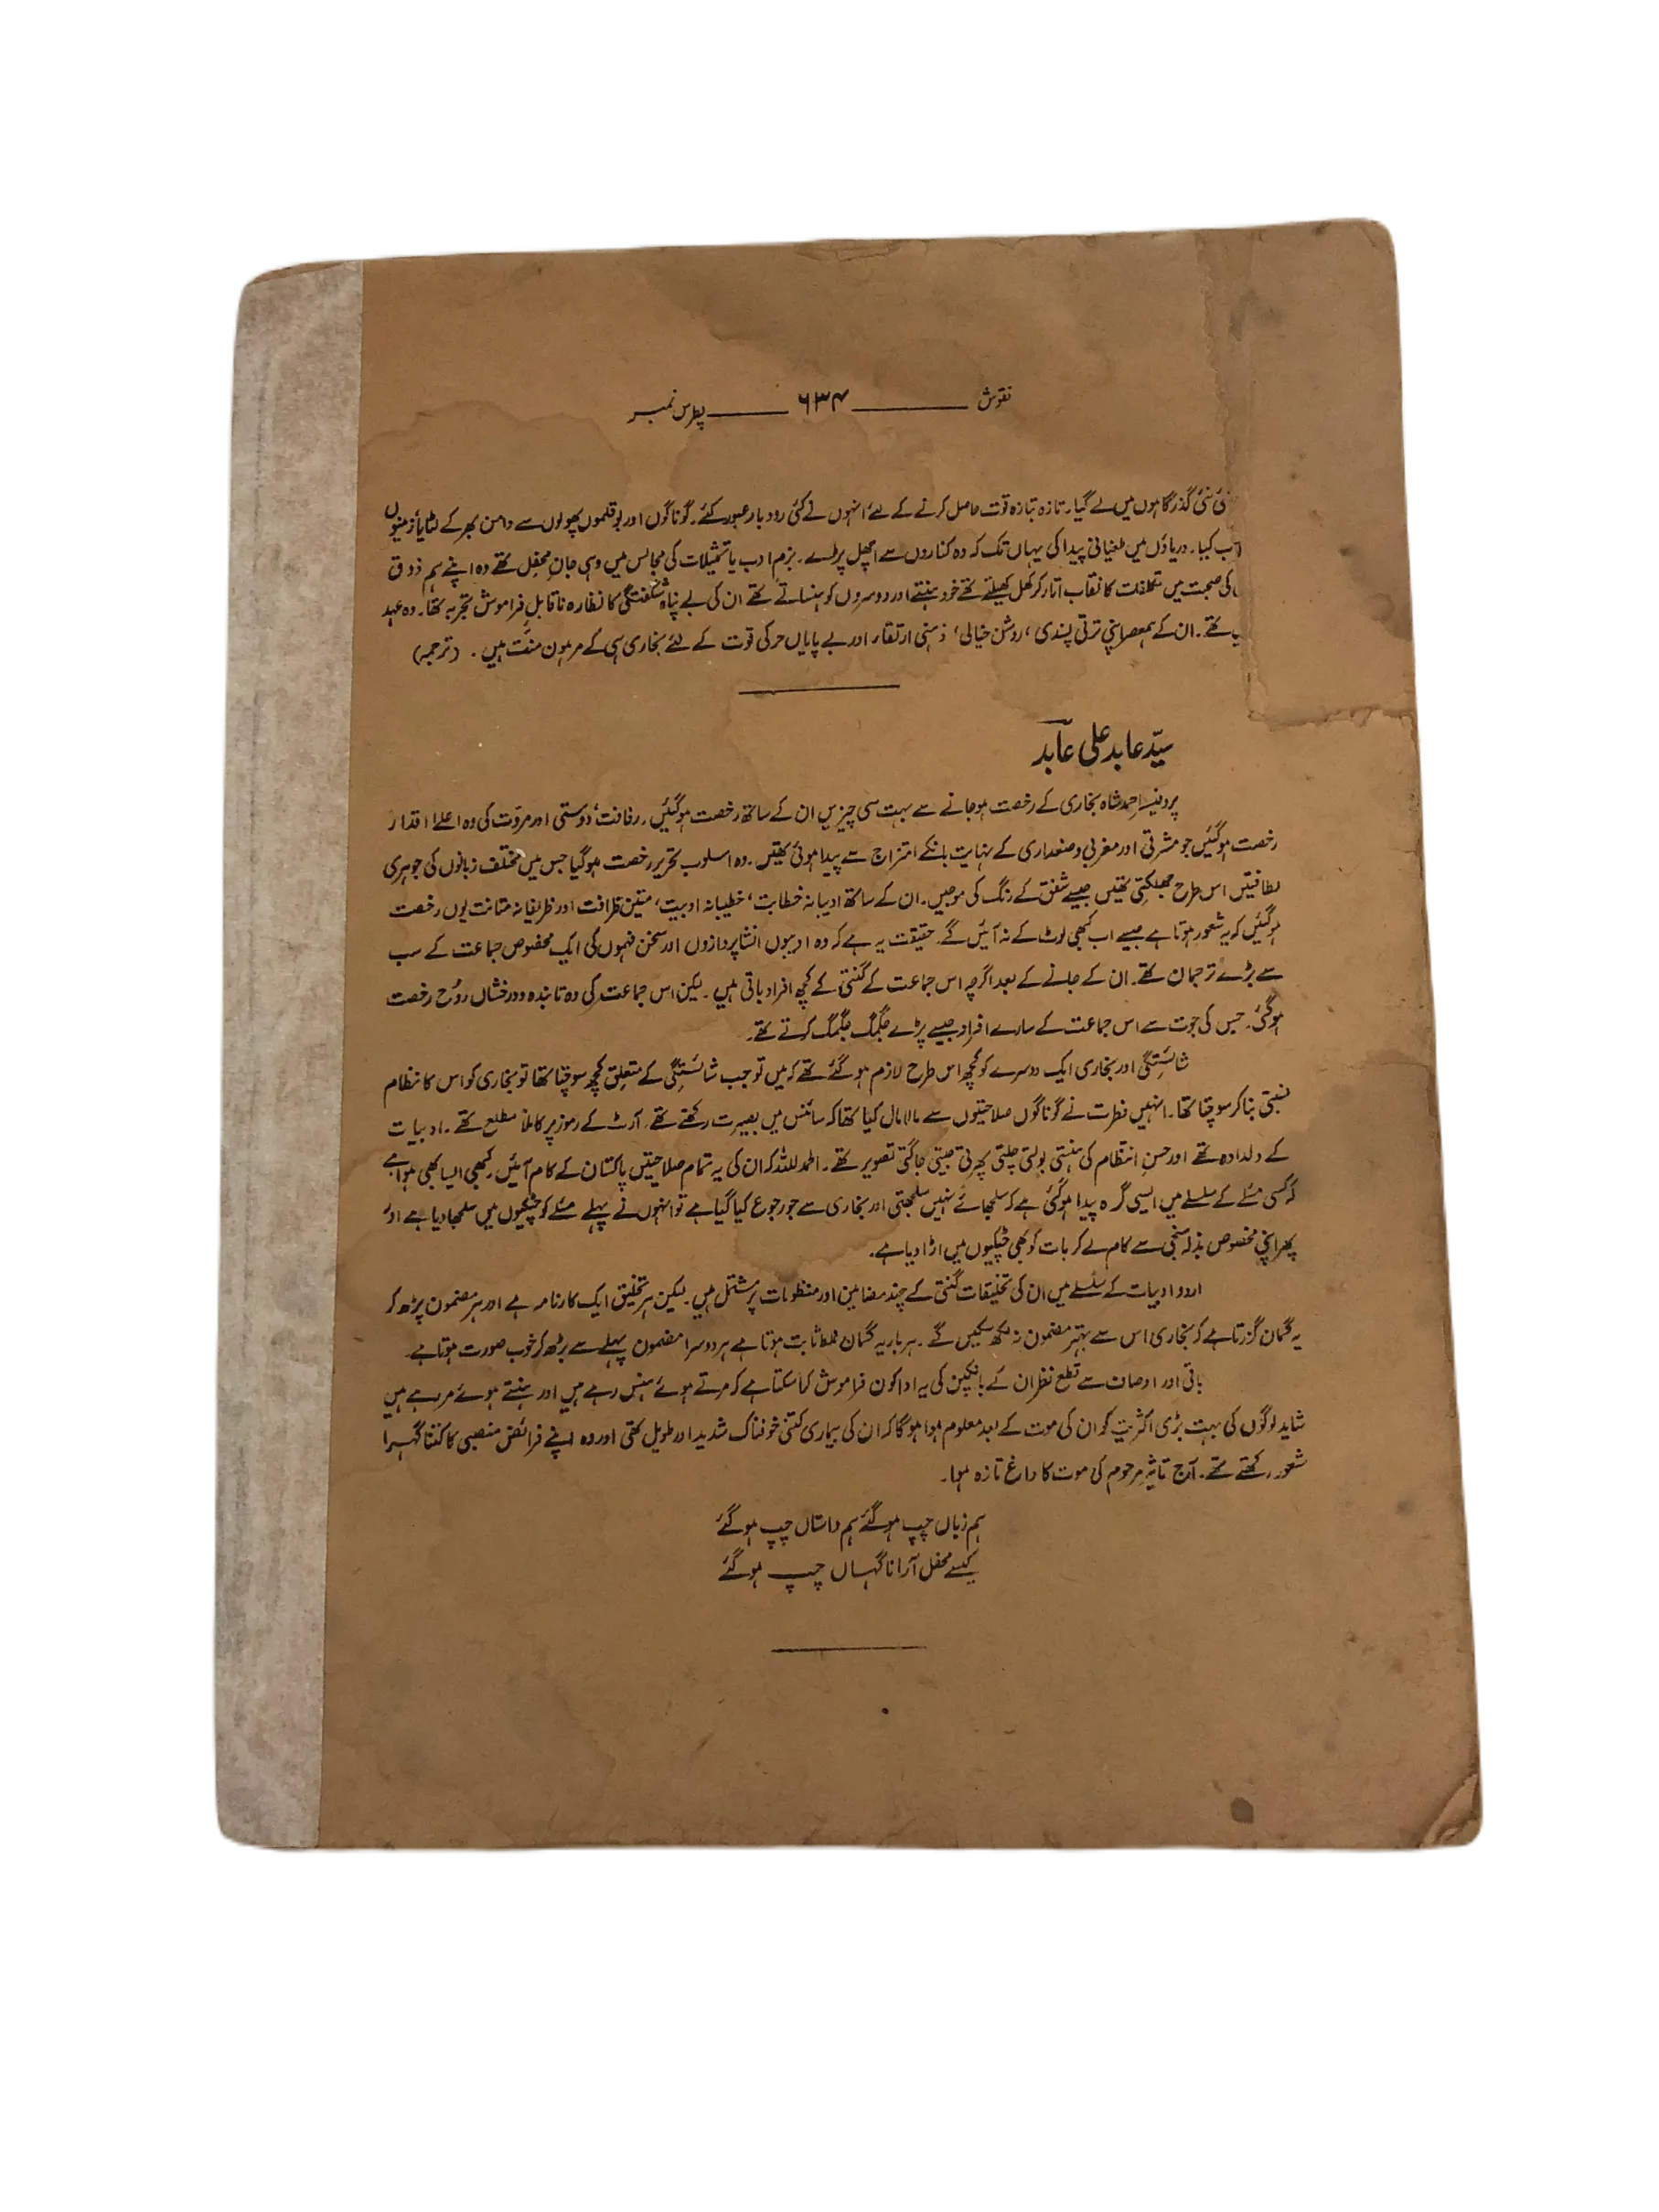 نقوش ــــــــ ۶۳۴ ــــــــ پطرس نمبر
نئی گذرگاہوں میں لے گیا۔ تازہ بتازہ قوت حاصل کرنے کے لئے انہوں نے کئی رودبار عبور کئے۔ گوناگوں اور بوقلموں پھولوں سے دامن بھر کے لٹایا، زمینوں
کیا۔ دریاؤں میں طغیانی پیدا کی یہاں تک کہ وہ کناروں سے اچھل پڑے۔ بزم ادب یا تمثیلات کی مجالس میں وہی جانِ محفل تھے وہ اپنے ہم ذوق
کی صحبت میں تکلفات کا نقاب اتار کر کھل کھیلتے تھے خود ہنستے اور دوسروں کو ہنساتے تھے ان کی بے پناہ شگفتگی کا نظارہ ناقابلِ فراموش تجربہ تھا۔ وہ عہد
تھے۔ ان کے ہمعصر اپنی ترقی پسندی، روشن خیالی، ذہنی ارتقاء اور بے پایاں حرکی قوت کے لئے بخاری ہی کے مرہون منت ہیں۔ (ترجمہ)
سیّد عابد علی عابدؔ
پروفیسر احمد شاہ بخاری کے رخصت ہو جانے سے بہت سی چیزیں ان کے ساتھ رخصت ہوگئیں۔ رفاقت، دوستی اور مروّت کی وہ اعلےٰ اقدار
رخصت ہوگئیں جو مشرقی اور مغربی وضعداری کے نہایت بانکے امتزاج سے پیدا ہوئی تھیں۔ وہ اسلوب تحریر رخصت ہوگیا جس میں مختلف زبانوں کی جوہری
لطافتیں اس طرح جھلکتی تھیں جیسے شفق کے رنگ کی موجیں۔ ان کے ساتھ ادیبانہ خطابت، خطیبانہ ادبیت، متین ظرافت اور ظریفانہ متانت یوں رخصت
ہوگئیں کہ یہ شعور ہوتا ہے جیسے اب کبھی لوٹ کے نہ آئیں گے۔ حقیقت یہ ہے کہ وہ ادیبوں انشا پردازوں اور سخن فہموں کی ایک مخصوص جماعت کے سب
سے بڑے ترجمان تھے۔ ان کے جانے کے بعد اگرچہ اس جماعت کے گنتی کے کچھ افراد باقی ہیں۔ لیکن اس جماعت کی وہ تابندہ و درخشاں رُوح رخصت
ہوگئی۔ جس کی جوت سے اس جماعت کے سارے افراد جیسے پڑے جگمگ جگمگ کرتے تھے۔
شائستگی اور بخاری ایک دوسرے کو کچھ اس طرح لازم ہوگئے تھے کہ میں تو جب شائستگی کے متعلق کچھ سوچتا تھا تو بخاری کو اس کا نظام
نسبتی بنا کر سوچتا تھا۔ انہیں فطرت نے گوناگوں صلاحیتوں سے مالا مال کیا تھا کہ سائنس میں بصیرت رکھتے تھے۔ آرٹ کے رموز پر کاملاً مطلع تھے۔ ادبیات
کے دلدادہ تھے اور حسنِ انتظام کی ہنستی بولتی چلتی پھرتی جیتی جاگتی تصویر تھے۔ الحمد للہ کہ ان کی یہ تمام صلاحیتیں پاکستان کے کام آئیں۔ کبھی ایسا بھی ہوا ہے
کہ کسی مسئلے کے سلسلے میں ایسی گرہ پیدا ہوگئی ہے کہ سلجھائے نہیں سلجھتی اور بخاری سے جو رجوع کیا گیا ہے تو انہوں نے پہلے مسئلے کو چٹکیوں میں سلجھا دیا ہے اور
پھر اپنی مخصوص بذلہ سنجی سے کام لے کر بات کو بھی چٹکیوں میں اڑا دیا ہے۔
اردو ادبیات کے سلسلے میں ان کی تخلیقات گنتی کے چند مضامین اور منظومات پر مشتمل ہیں۔ لیکن ہر تخلیق ایک کارنامہ ہے اور ہر مضمون پڑھ کر
یہ گمان گزرتا ہے کہ بخاری اس سے بہتر مضمون نہ لکھ سکیں گے۔ ہر بار یہ گمان غلط ثابت ہوتا ہے ہر دوسرا مضمون پہلے سے بڑھ کر خوب صورت ہوتا ہے۔
باقی اور اوصاف سے قطع نظر ان کے بانکپن کی یہ ادا کون فراموش کر سکتا ہے کہ مرتے ہوئے ہنس رہے ہیں اور ہنستے ہوئے مر رہے ہیں
شاید لوگوں کی بہت بڑی اکثریت کو ان کی موت کے بعد معلوم ہوا ہوگا کہ ان کی بیماری کتنی خوفناک شدید اور طویل تھی اور وہ اپنے فرائض منصبی کا کتنا گہرا
شعور رکھتے تھے۔ آج تاثیر مرحوم کی موت کا داغ تازہ ہوا۔
ہم زباں چپ ہوگئے ہم داستاں چپ ہوگئے
کیسے محفل آرا ناگہاں چپ ہوگئے